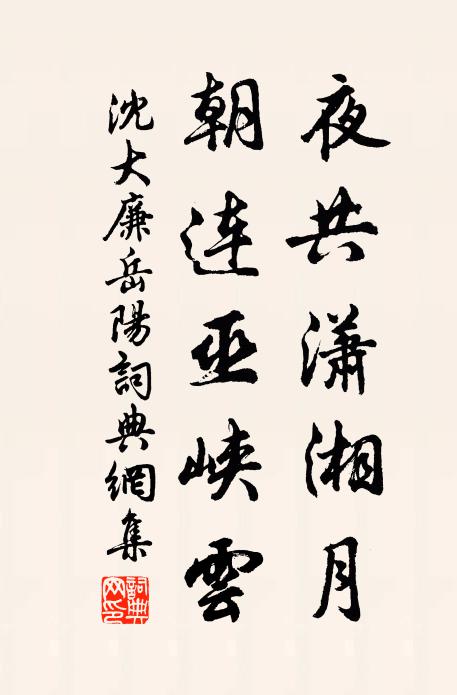 夜共瀟湘月
朝連巫峽雲
沈大廉岳陽詞典網集
詞典网印